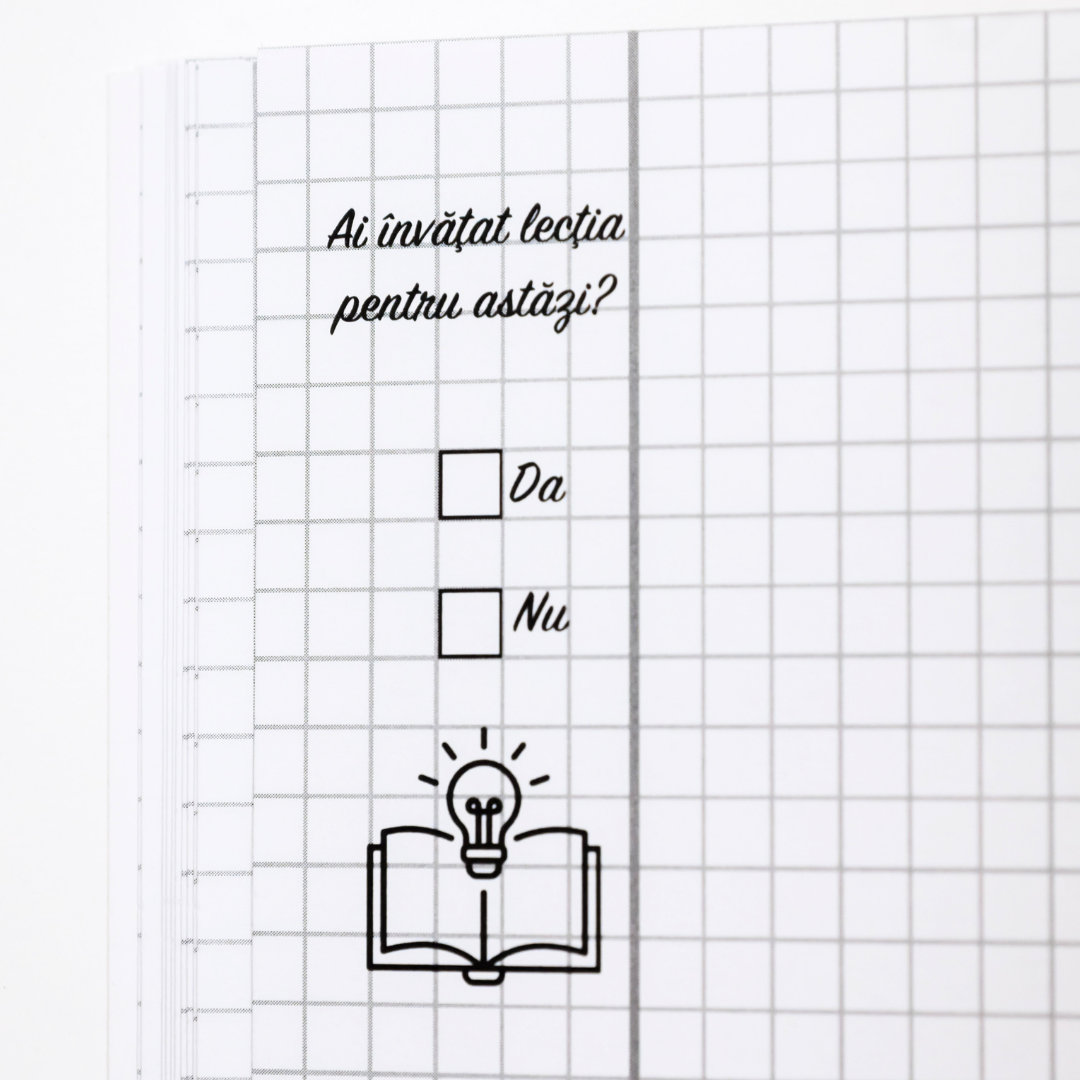 Ai învăţat lecţia
pentru astăzi?
Da
Nu